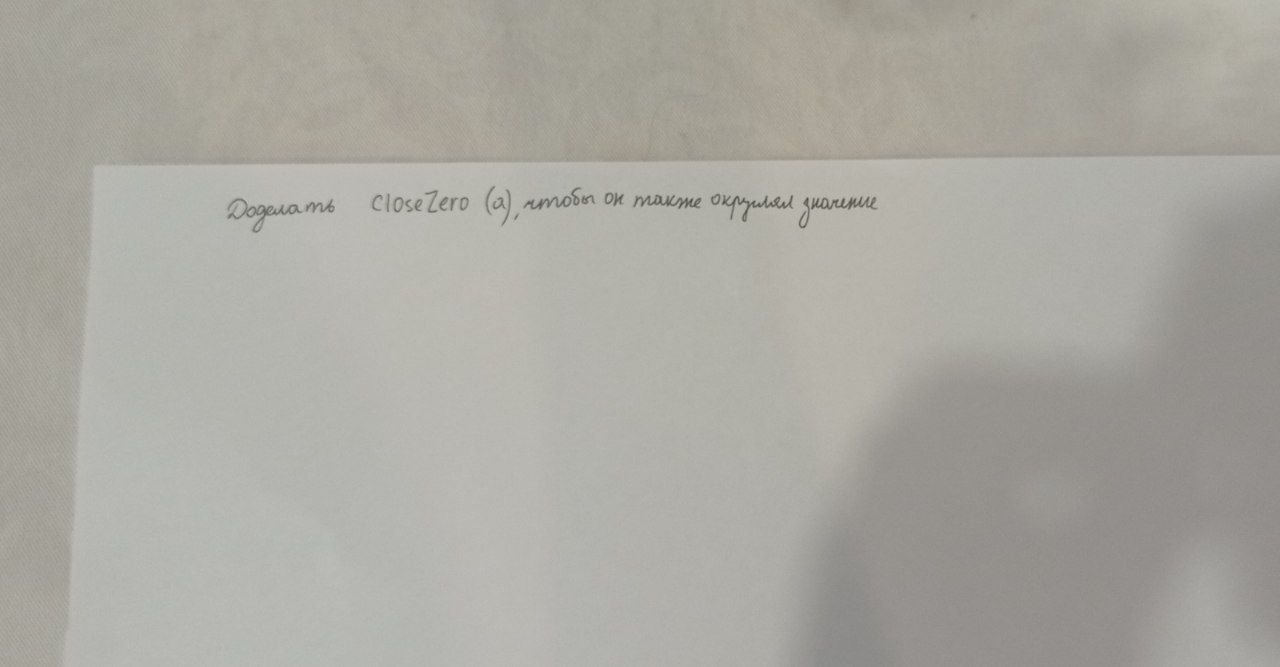 Доделать CloseZero (a), чтобы он также округлял значение